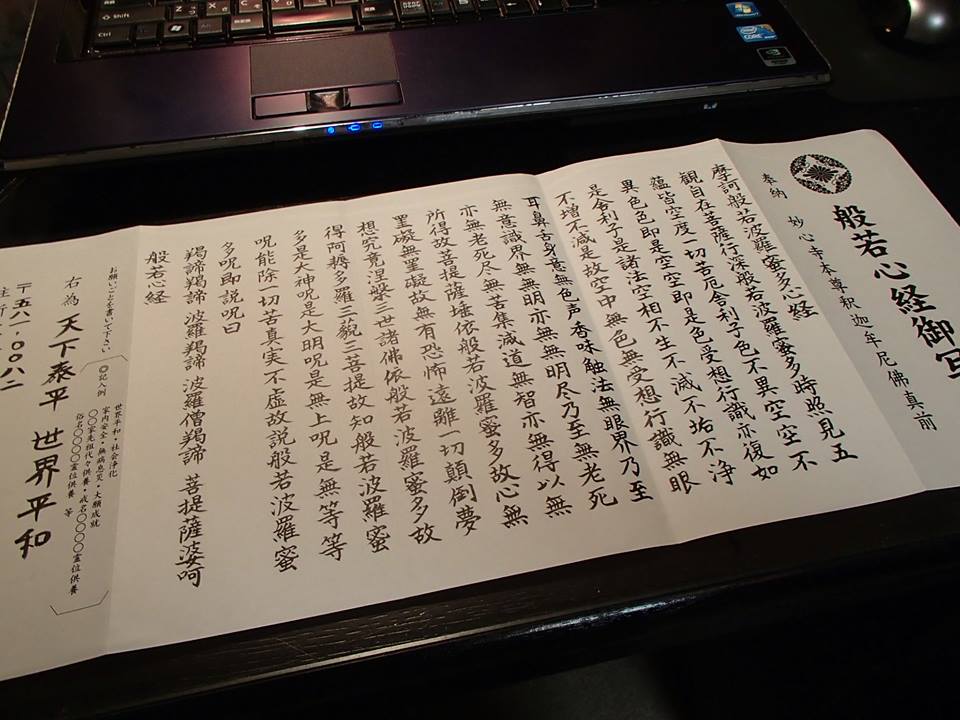 般若心経御写
奉納 妙心寺本尊釈迦牟尼佛真前
摩訶般若波羅蜜多心経
観自在菩薩行深般若波羅蜜多時照見五
蘊皆空度一切苦厄舎利子色不異空空不
異色色即是空空即是色受想行識亦復如
是舎利子是諸法空相不生不滅不垢不浄
不増不減是故空中無色無受想行識無眼
耳鼻舌身意無色声香味触法無眼界乃至
無意識界無無明亦無無明尽乃至無老死
亦無老死尽無苦集滅道無智亦無得以無
所得故菩提薩埵依般若波羅蜜多故心無
罣礙無罣礙故無有恐怖遠離一切顛倒夢
想究竟涅槃三世諸佛依般若波羅蜜多故
得阿耨多羅三藐三菩提故知般若波羅蜜
多是大神呪是大明呪是無上呪是無等等
呪能除一切苦真実不虚故説般若波羅蜜
多呪即説呪曰
羯諦羯諦 波羅羯諦 波羅僧羯諦 菩提薩婆呵
般若心経
お願いごとを書いて下さい
◎記入例
世界平和・社会浄化
家内安全・無病息災・大願成就
〇〇家先祖代々供養・戒名〇〇〇〇霊位供養
俗名〇〇〇〇霊位供養 等
右為 天下泰平 世界平和
〒581-0082
住所
Shift
Ctrl
CORE